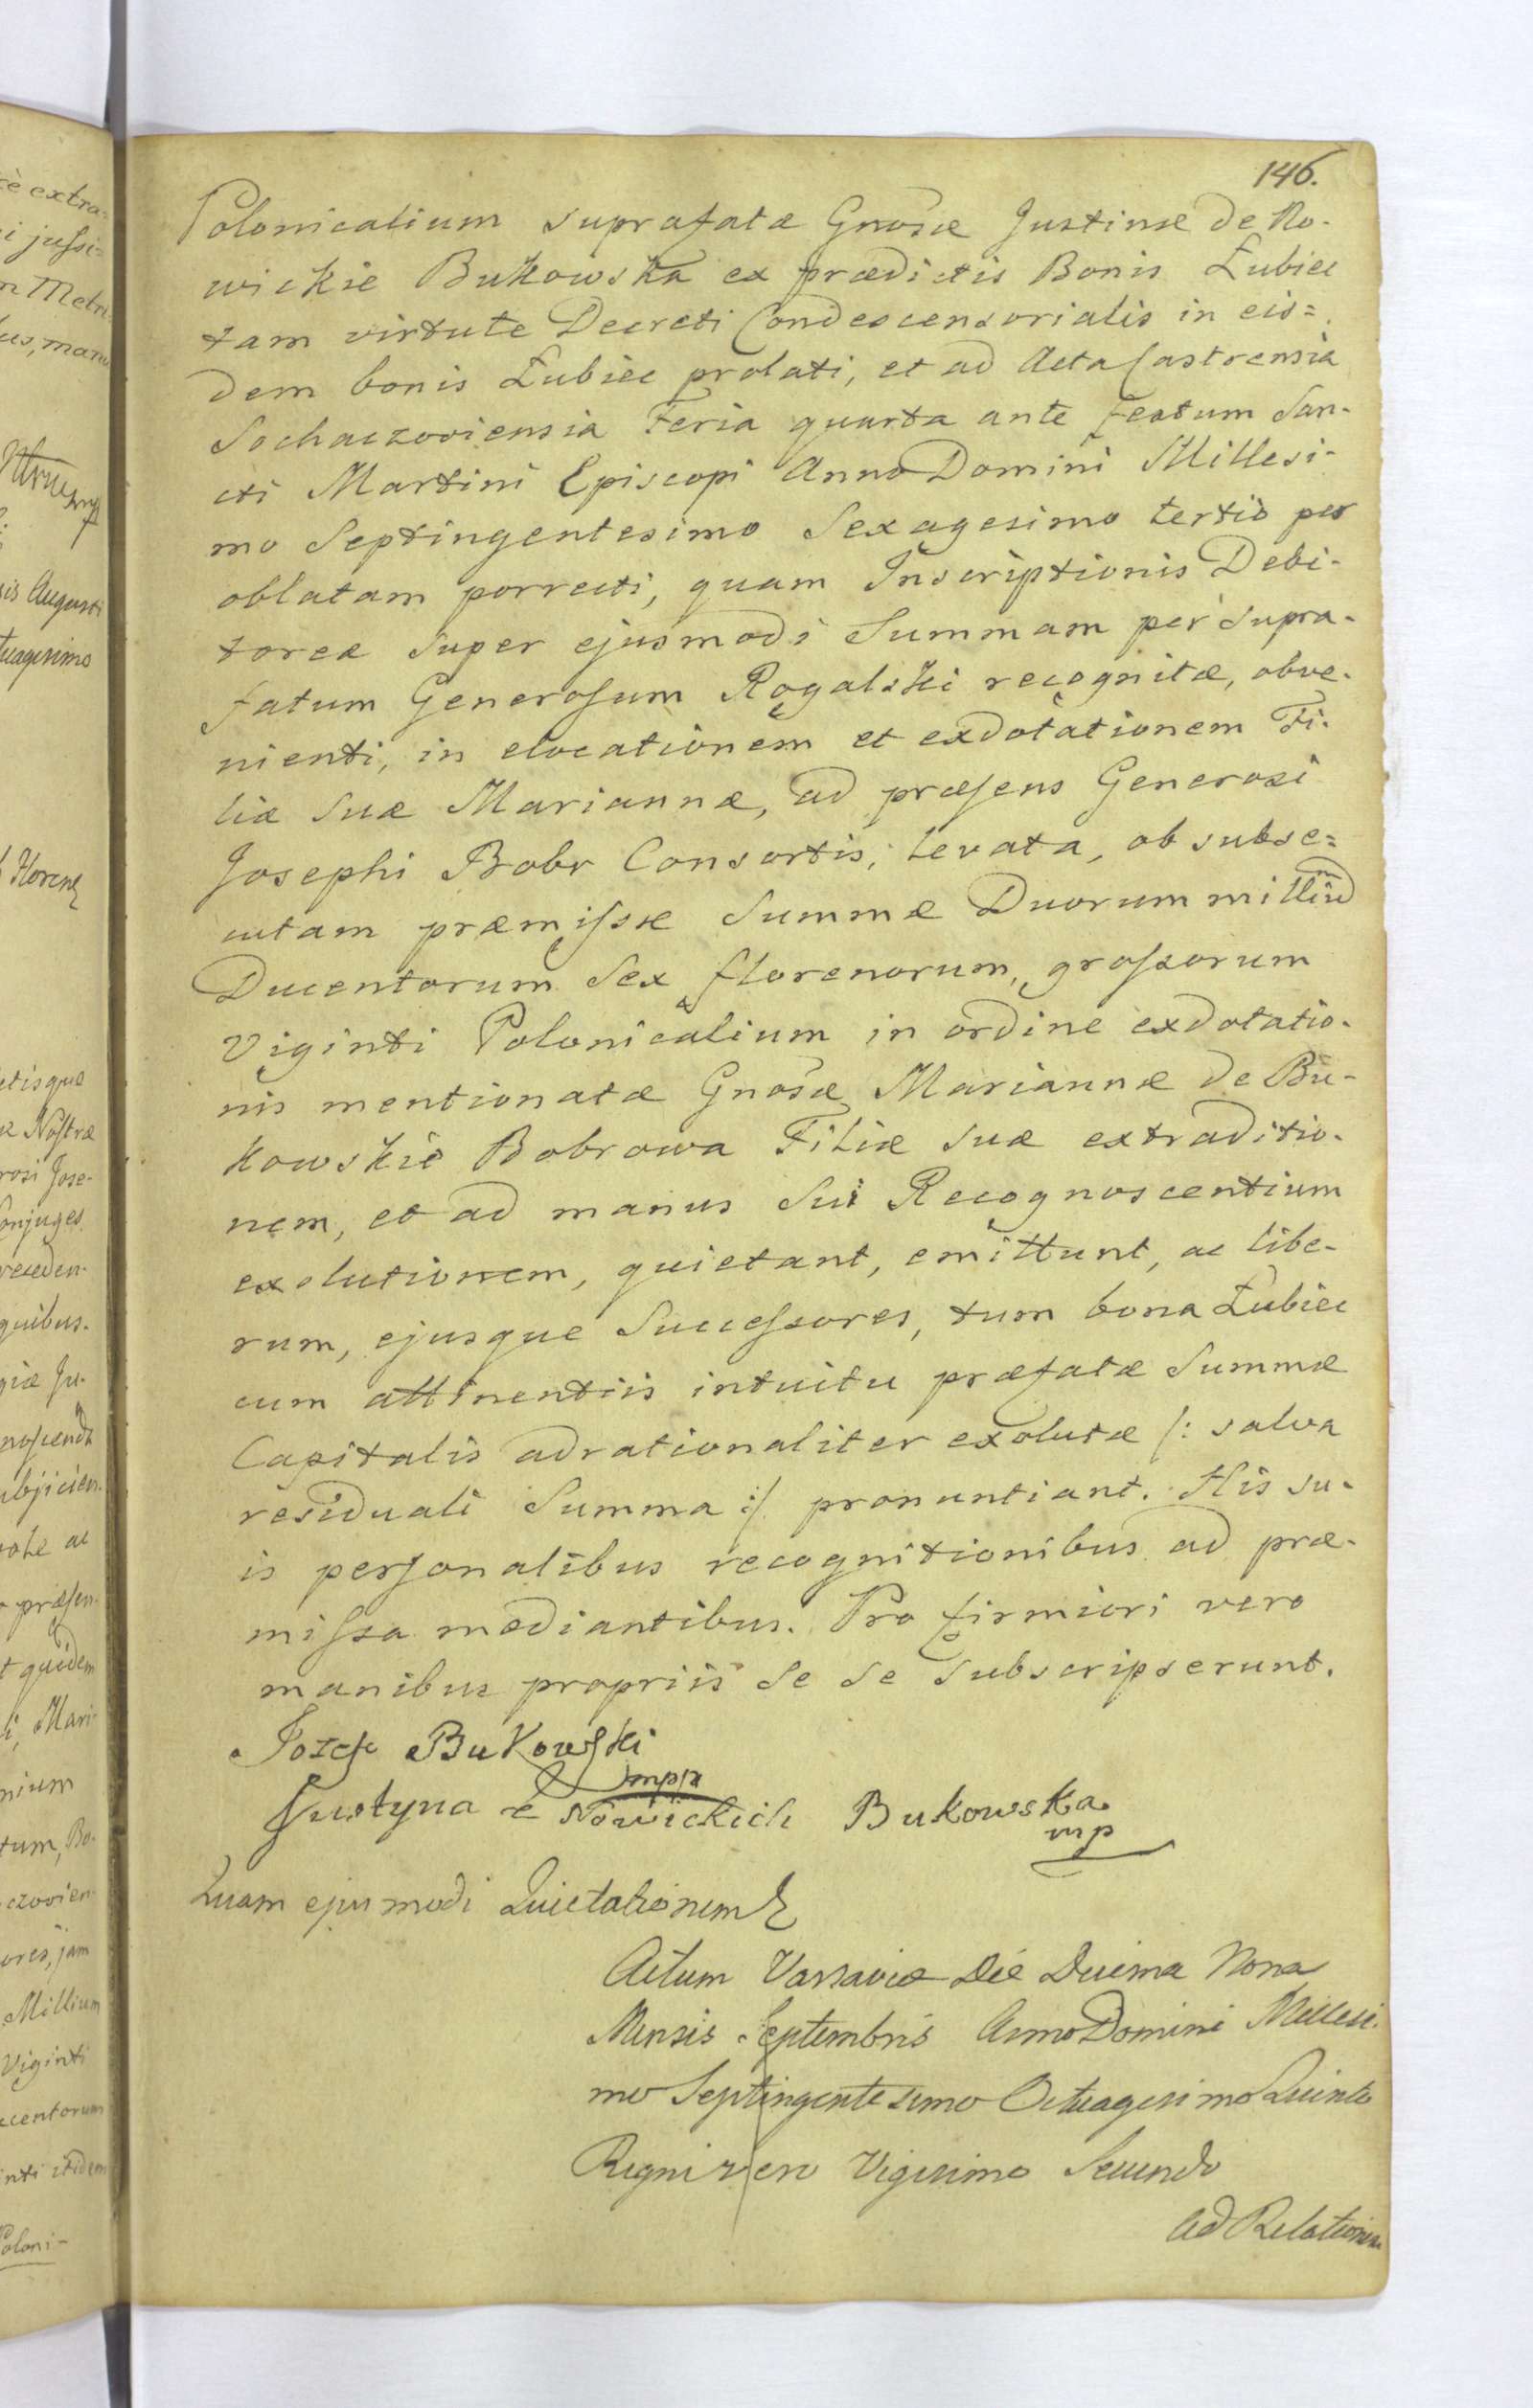 146.
Polonicalium suprafatæ Gnosæ Justinæ de No-
wickie Bukowska ex prædictis Bonis Łubiec
tam virtute Decreti Condescensorialis in eis=
dem bonis Łubiec prolati, et ad Acta Castrensia
Sochaczoviensia Feria quarta ante Festum San-
cti Martini Episcopi Anno Domini Millesi-
mo Septingentesimo Sexagesimo tertiò per
oblatam porrecti, quam Inscriptionis Debi-
toreæ super ejusmodi Summam per supra-
fatum Generosum Rogalski recognitæ, obve-
nienti, in elocationem et exdotationem Fi-
liæ suæ Mariannæ, ad præsens Generosi
Josephi Bobr Consortis, levata, ob subse=
cutam præmissæ Summæ Duorum milliũ
Ducentorum Sex florenorum, grossorum
Viginti Polonicalium in ordine exdotatio-
nis mentionatæ Gnosæ Mariannæ de Bu-
kowskie Bobrowa Filiæ suæ extraditio-
nem, et ad manus Sui Recognoscentium
exolutionem, quietant, emittunt, ac libe-
rum, ejusque Successores, tum bona Łubiec
cum attinentiis intuitu præfatæ Summæ
Capitalis adrationaliter exolutæ /: salva
residuali Summa :/ pronuntiant. His su-
is personalibus recognitionibus ad præ-
missa mediantibus. Pro firmiori vero
manibus propriis se se subscripserunt.
Jozef Bukowski
mpp
Justyna z Nowickich Bukowska
mp
Quam ejusmodi Quietationem
Actum Varsaviæ Die Decima Nona
Mensis Septembris Anno Domini Millesi-
mo Septingentesimo Octuagesimo Quinto
Regni vero Vigesimo Secundo
Ad Relationem